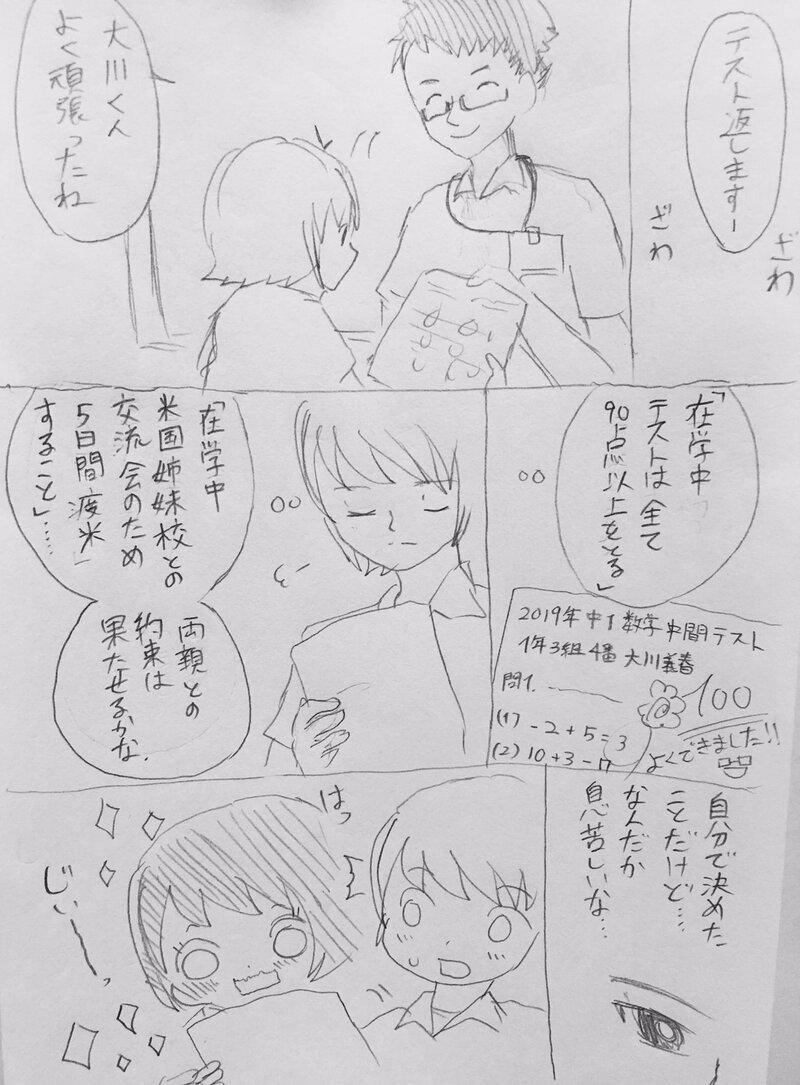 テスト返しますー
ざわ
ざわ
大川くん
よく頑張ったね
「在学中
テストは全て
90点以上をとる」
2019年 中1 数学 中間テスト
1年3組4番 大川義春
問1.
(1) -2+5=3
(2) 10+3-17
100
よくできました!!
「在学中
米国姉妹校との
交流会のため
5日間渡米
すること」……
両親との
約束は
果たせるかな.
自分で決めた
ことだけど…
なんだか
息苦しいな…
はっ
じぃーーっ